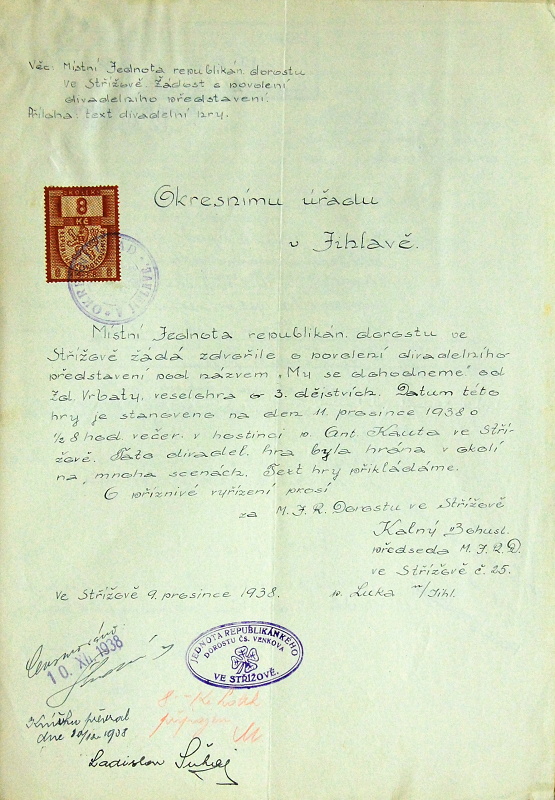 Věc: Místní Jednota republikán. dorostu
ve Střížově. Žádost o povolení
divadelního představení.
Příloha: text divadelní hry.
8
Kč
8 8
Okresnímu úřadu
v Jihlavě.
Místní Jednota republikán. dorostu ve
Střížově žádá zdvořile o povolení divadelního
představení pod názvem „My se dohodneme" od
Zd. Vrbaty, veselohra o 3. dějstvích. Datum této
hry je stanoveno na den 11. prosince 1938 o
½ 8 hod. večer. v hostinci p. Ant. Kauta ve Stří-
žově. Tato divadel. hra byla hrána v okolí
na mnoha scenách. Text hry přikládáme.
O příznivé vyřízení prosí
za M. J. R. Dorostu ve Střížově
Kalný Bohusl.
předseda M. J. R. D.
ve Střížově č. 25.
ve Střížově 9. prosince 1938.
p. Luka n/Jihl.
Censurováno:
10. XII. 1938
JEDNOTA REPUBLIKÁNKÉHO
DOROSTU ČS. VENKOVA
VE STŘÍŽOVĚ.
8 - Kč kolek
připojen
Knížku převzal
dne 10/12 1938
Ladislav